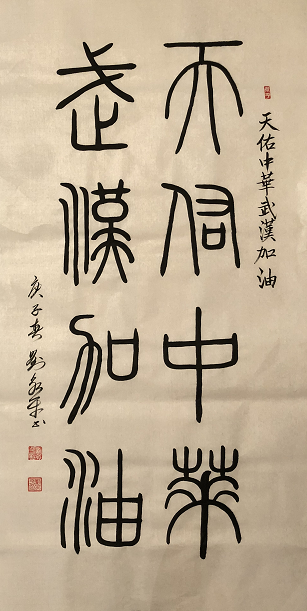 天佑中華武漢加油
天佑中華
武漢加油
庚子春 劉